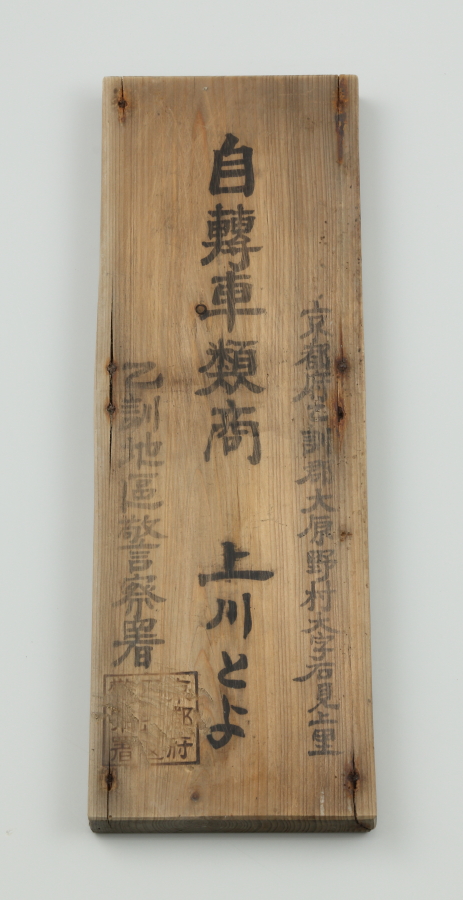 京都府乙訓郡大原野村大字石見上里
自轉車類商 上川とよ
乙訓地區警察署
京都府
警察署